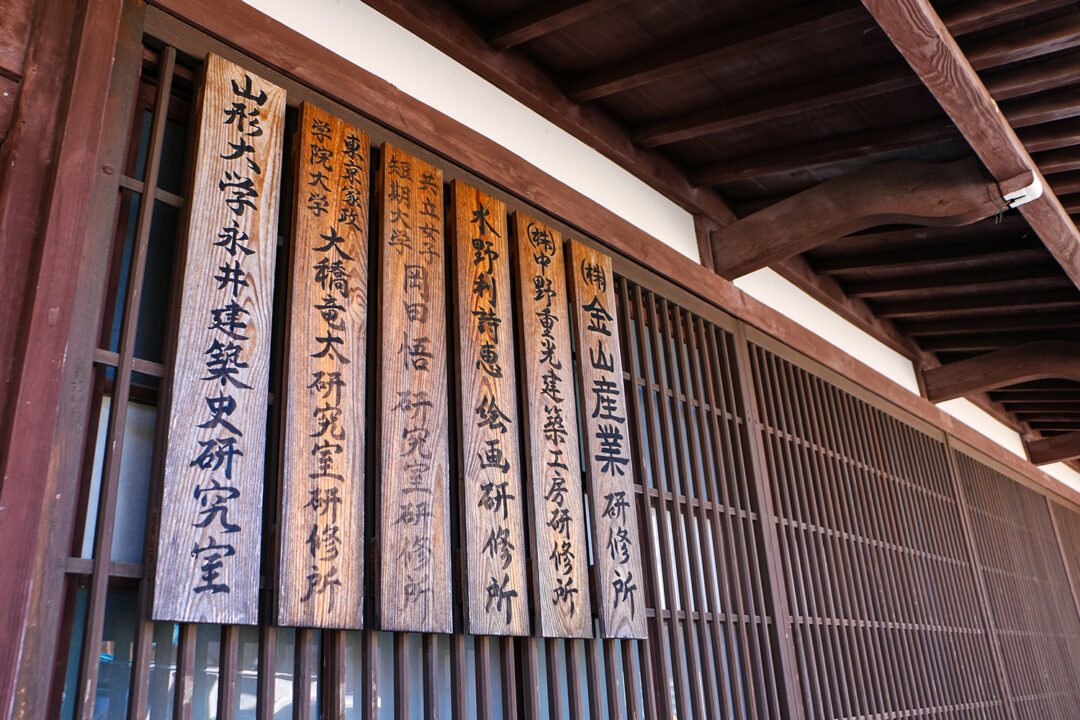 山形大学永井建築史研究室
東京家政
学院大学
大橋竜太研究室研修所
共立女子
短期大学
岡田悟研究室研修所
水野利詩恵絵画研修所
(株)中野重光建築工房研修所
(株)金山産業研修所